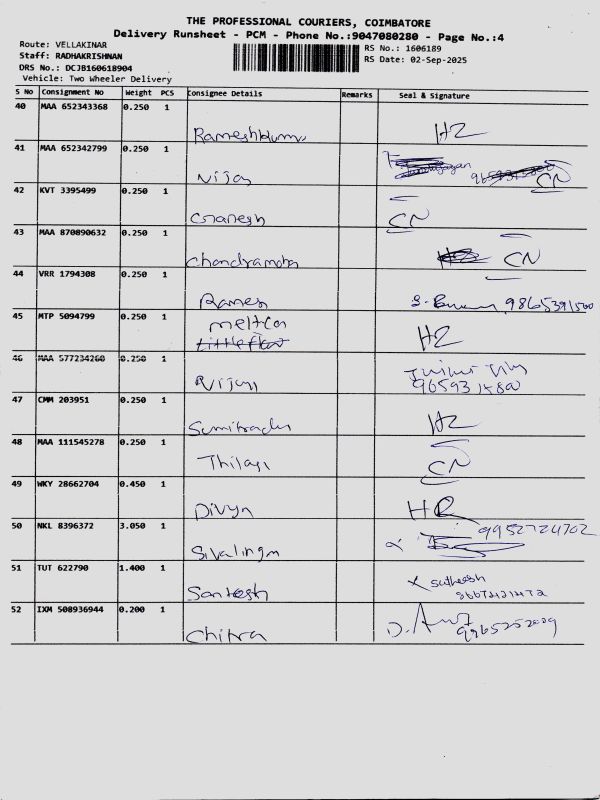 THE PROFESSIONAL COURIERS, COIMBATORE
Delivery Runsheet - PCM - Phone No.:9047080280 - Page No.:4
Route: VELLAKINAR
RS No.: 1606189
Staff: RADHAKRISHNAN
RS Date: 02-Sep-2025
DRS No.: DCJB160618904
Vehicle: Two Wheeler Delivery
S No Consignment No Weight PCS Consignee Details Remarks Seal & Signature
40 MAA 652343368 0.250 1
Rameshkumar HZ
41 MAA 652342799 0.250 1
Vijay CN
42 KVT 3395499 0.250 1
Ganesh CN
43 MAA 870890632 0.250 1
Chandramohan CN
44 VRR 1794308 0.250 1
Ramesh 9865391500
45 MTP 5094799 0.250 1
HZ
46 MAA 577234260 0.250 1
Vijay
47 CMM 203951 0.250 1
HZ
48 MAA 111545278 0.250 1
Thilagi CN
49 WKY 28662704 0.450 1
Divya HR
50 NKL 8396372 3.050 1
9952724702
Sivalingm
51 TUT 622790 1.400 1
Santosh
52 IXM 508936944 0.200 1
Chitra D. 9965252009